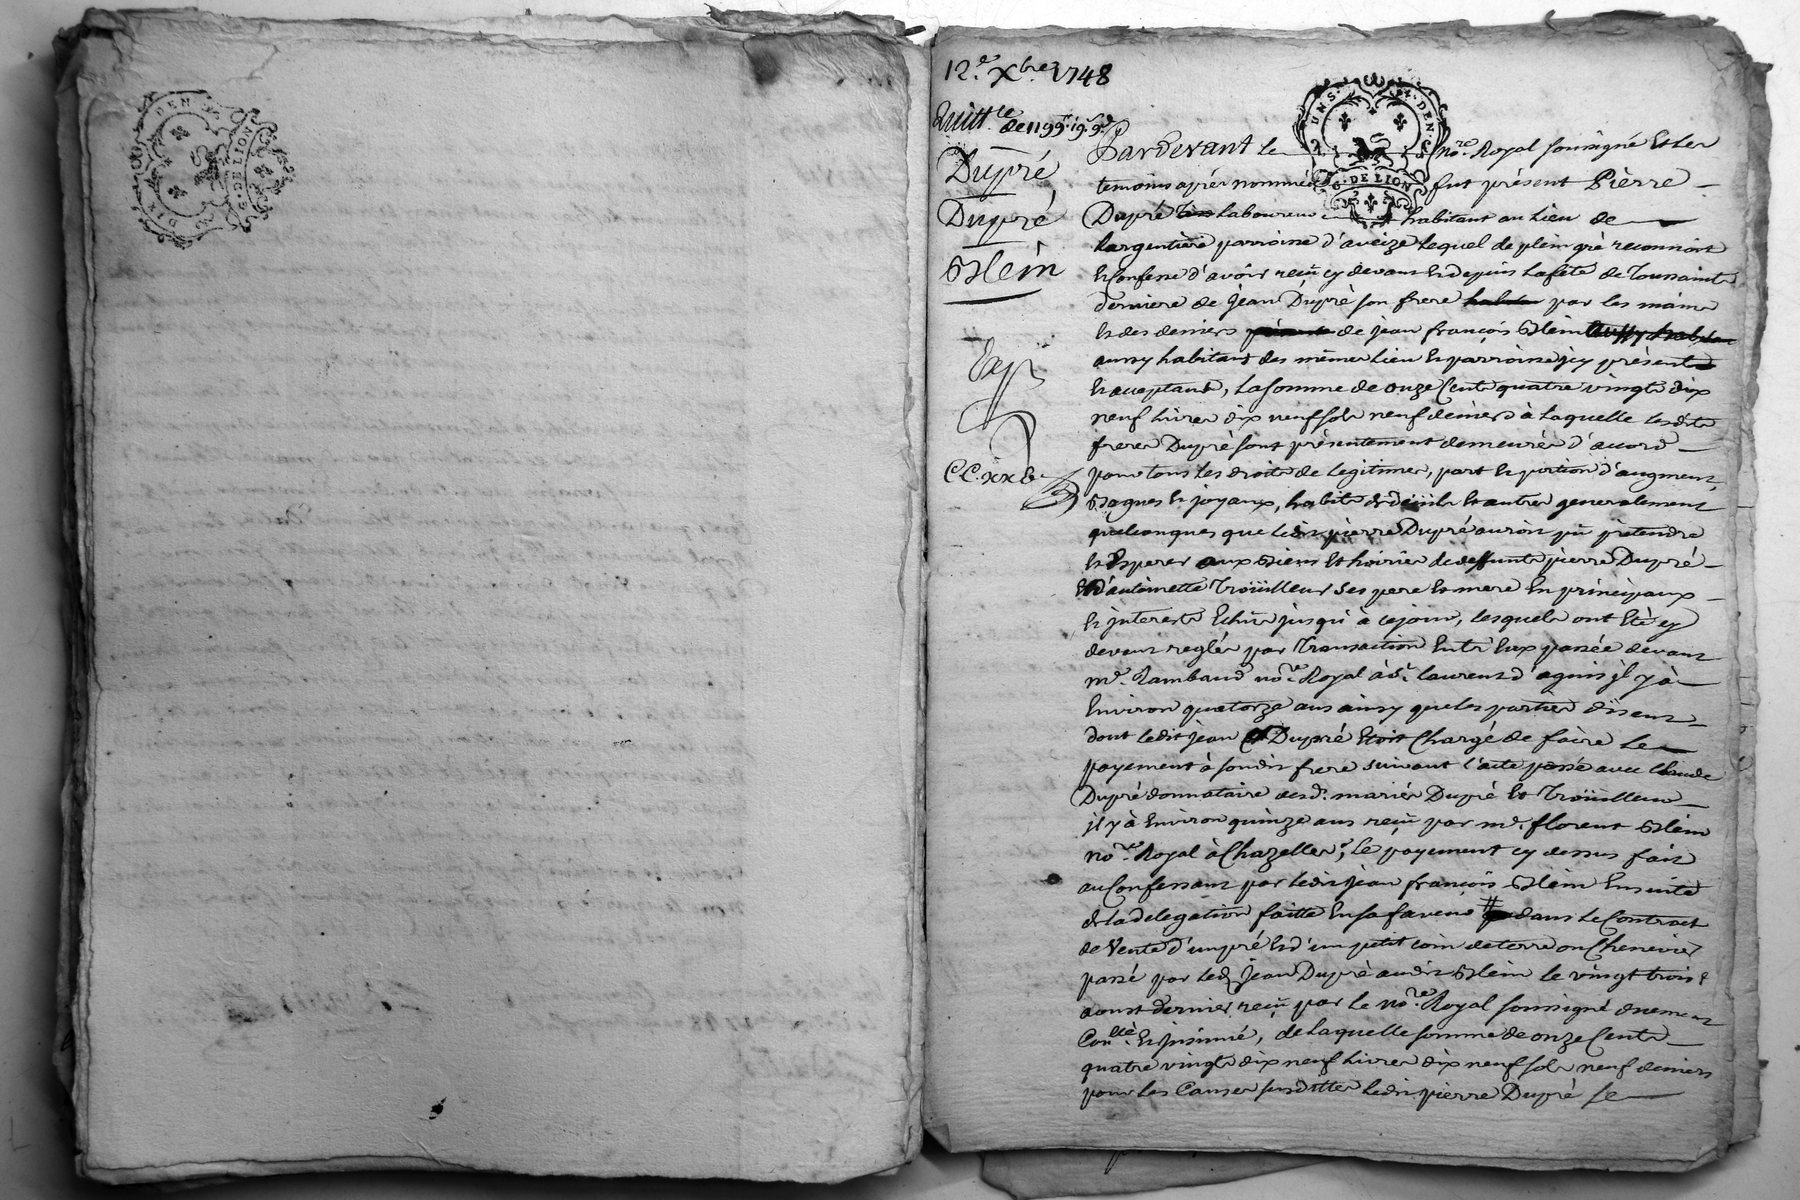 12.e Xbre 1748
Quitt.ce de 1199lt. 19s. 9d
Dupré
Dupré
Blein
Exp
CC.xx
UN S. DEN.
G. DE LION
DEN
G. DE LION
Pardevant le no.re Royal soussigné Et les
temoins aprés nommés fut présent Pièrre
Dupré laboureur habitant au Lieu de
Largentière parroisse d'aveize Lequel de plein gré reconnoit
Et Confesse d'avoir reçu cy devant Et depuis La fête de Toussaints
derniere de Jean Dupré son frere par les mains
Et des deniers de jean françois Blein
aussy habitant des mêmes Lieu Et parroisse jcy présent
Et acceptant, La somme de onze Cents quatre vingts dix
neuf Livres dix neuf sols neuf deniers à Laquelle Lesdits
freres Dupré sont présentement demeurés d'accord
pour tous Les droits de legitimes, part Et portion d'augment,
Bagues Et joyaux, habits de deüil Et autres generalement
quelconques que Ledit pierre Dupré auroit pû prétendre
Et Esperer aux Biens Et hoiries de deffunts pierre Dupré
Et d'antoinette Troüilleur ses pere Et mere En principaux
Et jnterests Echus jusqu'à ce jour, Lesquels ont Eté cy
devant reglés par Transaction Entr'Eux passée devant
m.e Rambaud no.re Royal à S.t Laurent d'agnis jl y à
Environ quatorze ans ainsy que Les parties disent
dont Ledit jean Dupré Etoit Chargé de faire Le
payement à sondit frere suivant l'acte passé avec Claude
Dupré donnataire desd. mariés Dupré Et Troüilleur
jl y à Environ quinze ans reçu par m.e florent Blein
no.re Royal à Chazelles, Le payement cy dessus fait
au Confessant par Ledit jean françois Blein Ensuite
de La delegation faitte En sa faveur # dans Le Contract
de Vente d'un pré Et d'un petit coin de terre ou Chenevier
passé par Led. Jean Dupré audit Blein Le vingt trois
aoust dernier reçu par Le no.re Royal soussigné duement
Con.llé Et jnsinué, de Laquelle somme de onze Cents
quatre vingts dix neuf Livres dix neuf sols neuf deniers
pour Les Causes susdittes Ledit pierre Dupré se